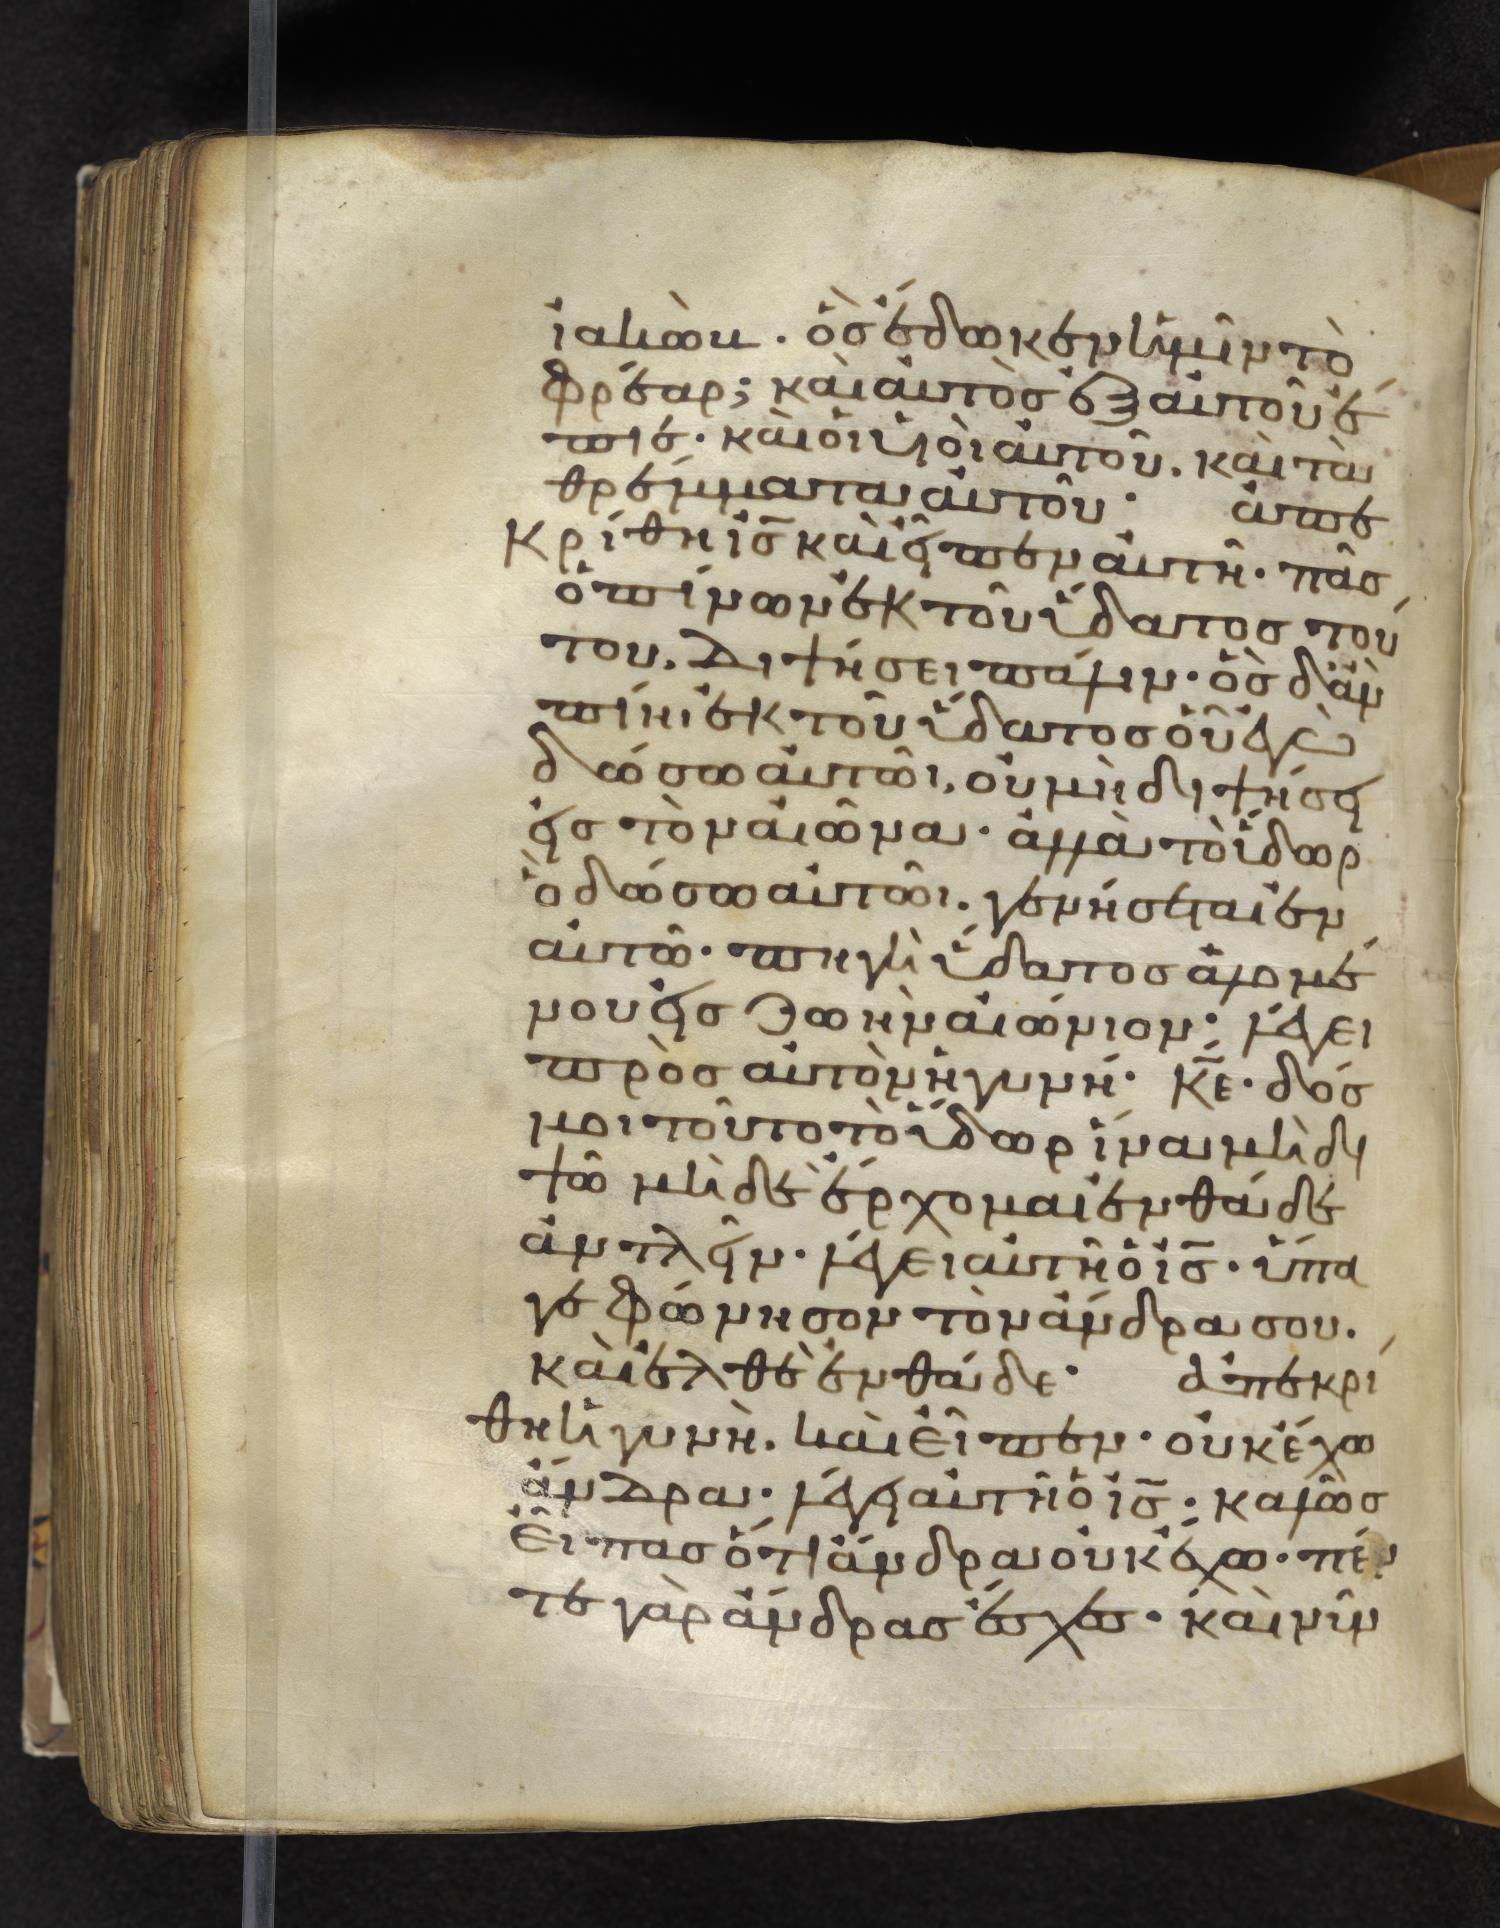 ἰακὼβ. ὃς ἔδωκεν ἡμῖν τὸ
φρέαρ; καὶ αὐτὸς ἐξ αὐτοῦ ἔ
πιε. καὶ οἱ υἱοὶ αὐτοῦ. καὶ τὰ
θρέμματα αὐτοῦ· ἀπε
κρίθη ἰς̅ καὶ εἶπεν αὐτῆ. πᾶς
ὁ πίνων ἐκ τοῦ ὕδατος τού
του, διψήσει πάλιν. ὃς δ' ἂν
πίηι ἐκ τοῦ ὕδατος οὗ ἐγὼ
δώσω αὐτῶι, οὐ μὴ διψήσει
εἰς τὸν αἰῶνα. ἀλλὰ τὸ ὕδωρ
ὃ δώσω αὐτῶι. γενήσεται ἐν
αὐτῶ. πηγὴ ὕδατος ἁλομέ
νου εἰς ζωὴν αἰώνιον· λέγει
πρὸς αὐτὸν ἡ γυνή. κ̅ε. δός
μοι τοῦτο τὸ ὕδωρ ἵνα μὴ δι
ψῶ μὴ δὲ ἔρχομαι ἐνθάδε
ἀντλεῖν. λέγει αὐτῆ ὁ ἰς̅. ὕπα
γε φώνησον τὸν ἄνδρα σου.
καὶ ἐλθὲ ἐνθάδε· ἀπεκρί
θη ἡ γυνὴ. καὶ εἶπεν. οὐκ ἔχω
ἄνδρα. λέγει αὐτῆ ὁ ἰς̅. καλῶς
εἶπας ὅτι ἄνδρα οὐκ ἔχω. πέν
τε γὰρ ἄνδρας ἔσχες. καὶ νῦν